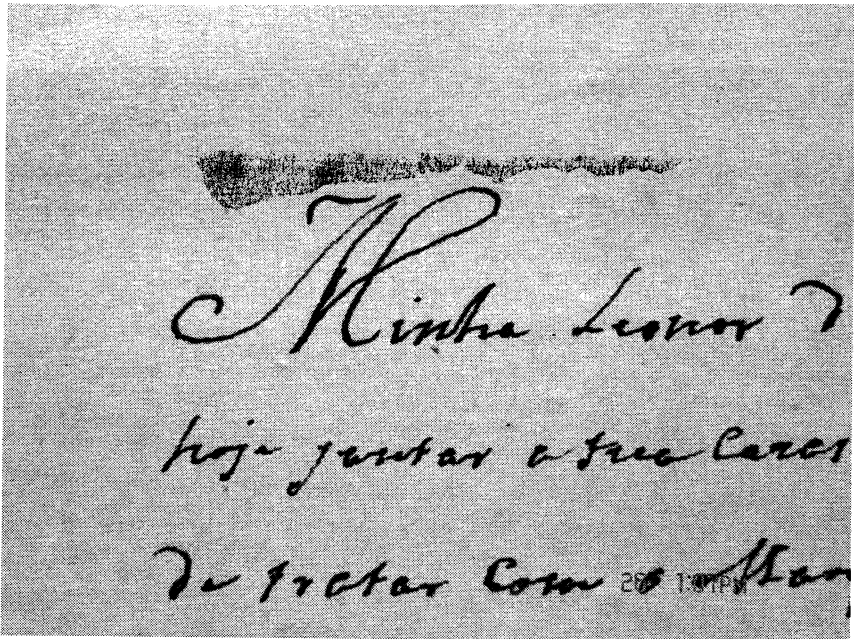 Minha Leonor D
hoje jantar a tua Caza
de tratar com o Marq